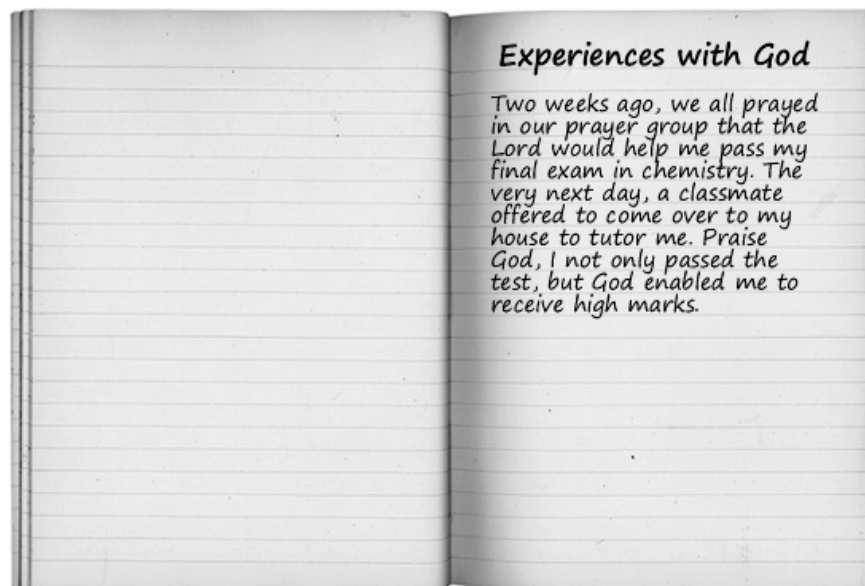 Experiences with God
Two weeks ago, we all prayed
in our prayer group that the
Lord would help me pass my
final exam in chemistry. The
very next day, a classmate
offered to come over to my
house to tutor me. Praise
God, I not only passed the
test, but God enabled me to
receive high marks.